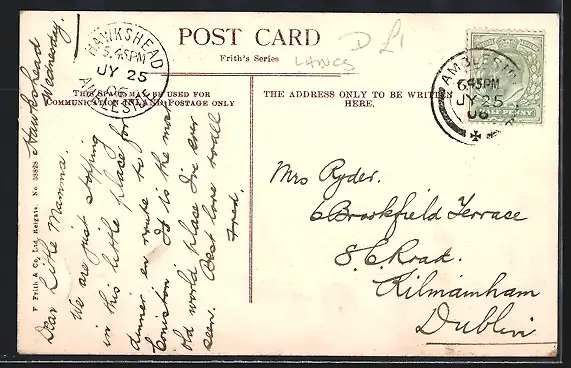 POST CARD
Frith's Series
LANCS
D £1
THIS SPACE MAY BE USED FOR
COMMUNICATION INLAND POSTAGE ONLY
THE ADDRESS ONLY TO BE WRITTEN
HERE.
HAWKSHEAD
5.45PM
JY 25
06
AMBLESIDE
AMBLESIDE
6.45PM
JY 25
06
F Frith & Co, Ltd, Reigate. No 38825
Hawkshead
Wednesday.
Dear Little Mamma.
We are just stopping
in his little place for
dinner en route to
Coniston It is the most
old world place I've ever
seen. Best love to all
Fred.
Mrs Ryder.
6 Brookfield Terrace
S. C. Road.
Kilmainham
Dublin